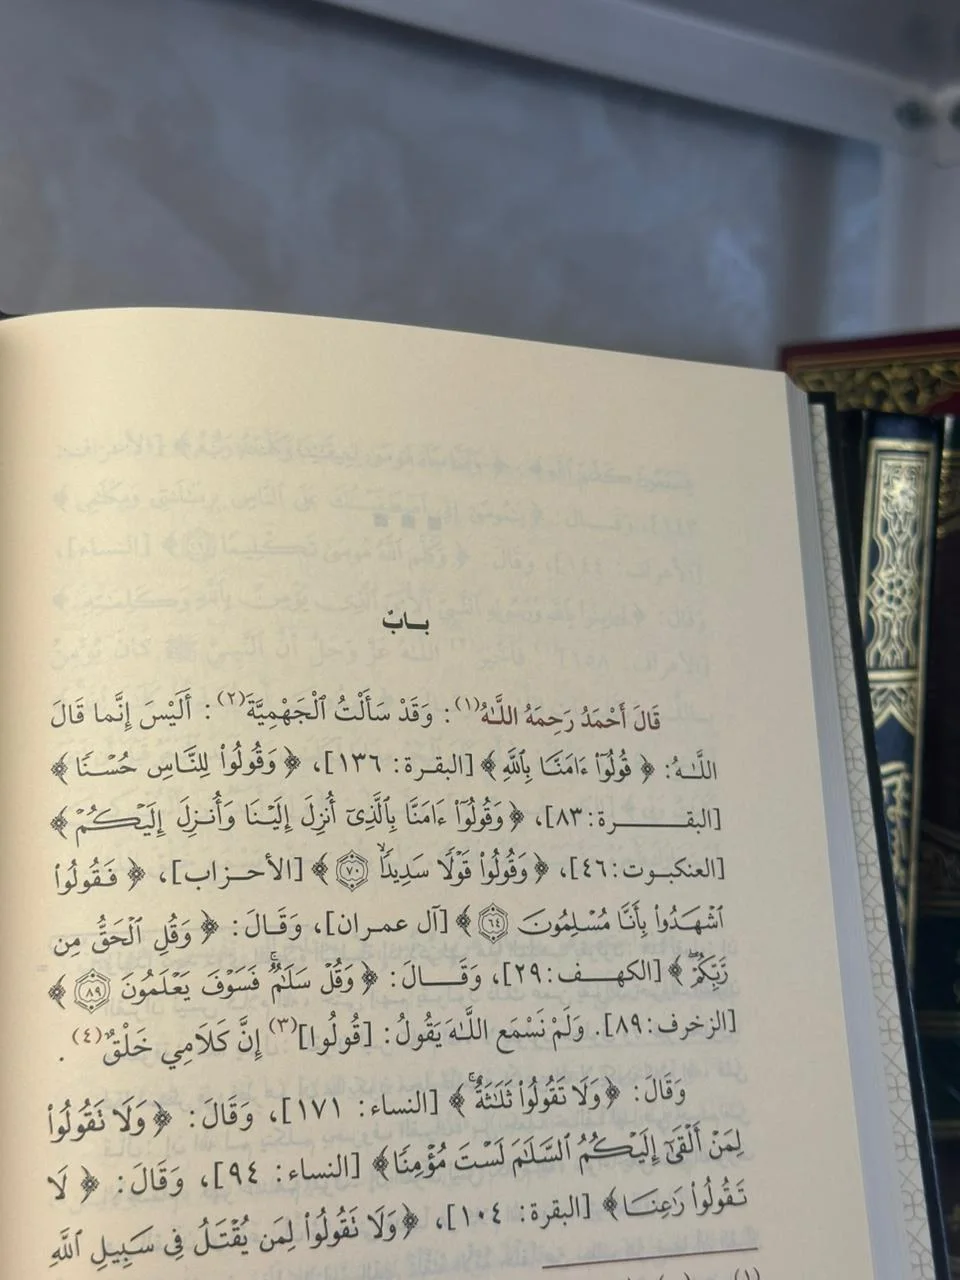 بـابٌ
قَالَ أَحْمَدُ رَحِمَهُ اللَّـهُ(١): وَقَدْ سَأَلْتُ الْجَهْمِيَّةَ(٢): أَلَيْسَ إِنَّما قَالَ
اللَّـهُ: ﴿ قُولُوٓا۟ ءَامَنَّا بِٱللَّهِ ﴾ [البقـرة: ١٣٦]، ﴿ وَقُولُوا۟ لِلنَّاسِ حُسْنًا ﴾
[البقــــرة: ٨٣]، ﴿ وَقُولُوٓا۟ ءَامَنَّا بِٱلَّذِىٓ أُنزِلَ إِلَيْنَا وَأُنزِلَ إِلَيْكُمْ ﴾
[العنكبـوت: ٤٦]، ﴿ وَقُولُوا۟ قَوْلًا سَدِيدًا ۝٧٠ ﴾ [الأحـزاب]، ﴿ فَقُولُوا۟
ٱشْهَدُوا۟ بِأَنَّا مُسْلِمُونَ ۝٦٤ ﴾ [آل عمـران]، وَقَـالَ: ﴿ وَقُلِ ٱلْحَقُّ مِن
رَّبِّكُمْ ۖ ﴾ [الكهـف: ٢٩]، وَقَــالَ: ﴿ وَقُلْ سَلَـٰمٌ ۚ فَسَوْفَ يَعْلَمُونَ ۝٨٩ ﴾
[الزخرف: ٨٩]. وَلَمْ نَسْمَعِ اللَّـهَ يَقُولُ: [قُولُوا](٣) إِنَّ كَلَامِي خَلْقٌ(٤).
وَقَالَ: ﴿ وَلَا تَقُولُوا۟ ثَلَـٰثَةٌ ۚ ﴾ [النساء: ١٧١]، وَقَالَ: ﴿ وَلَا تَقُولُوا۟
لِمَنْ أَلْقَىٰٓ إِلَيْكُمُ ٱلسَّلَـٰمَ لَسْتَ مُؤْمِنًا ﴾ [النساء: ٩٤]، وَقَالَ: ﴿ لَا
تَقُولُوا۟ رَٰعِنَـا ﴾ [البقرة: ١٠٤]، ﴿ وَلَا تَقُولُوا۟ لِمَن يُقْتَلُ فِى سَبِيلِ ٱللَّهِ